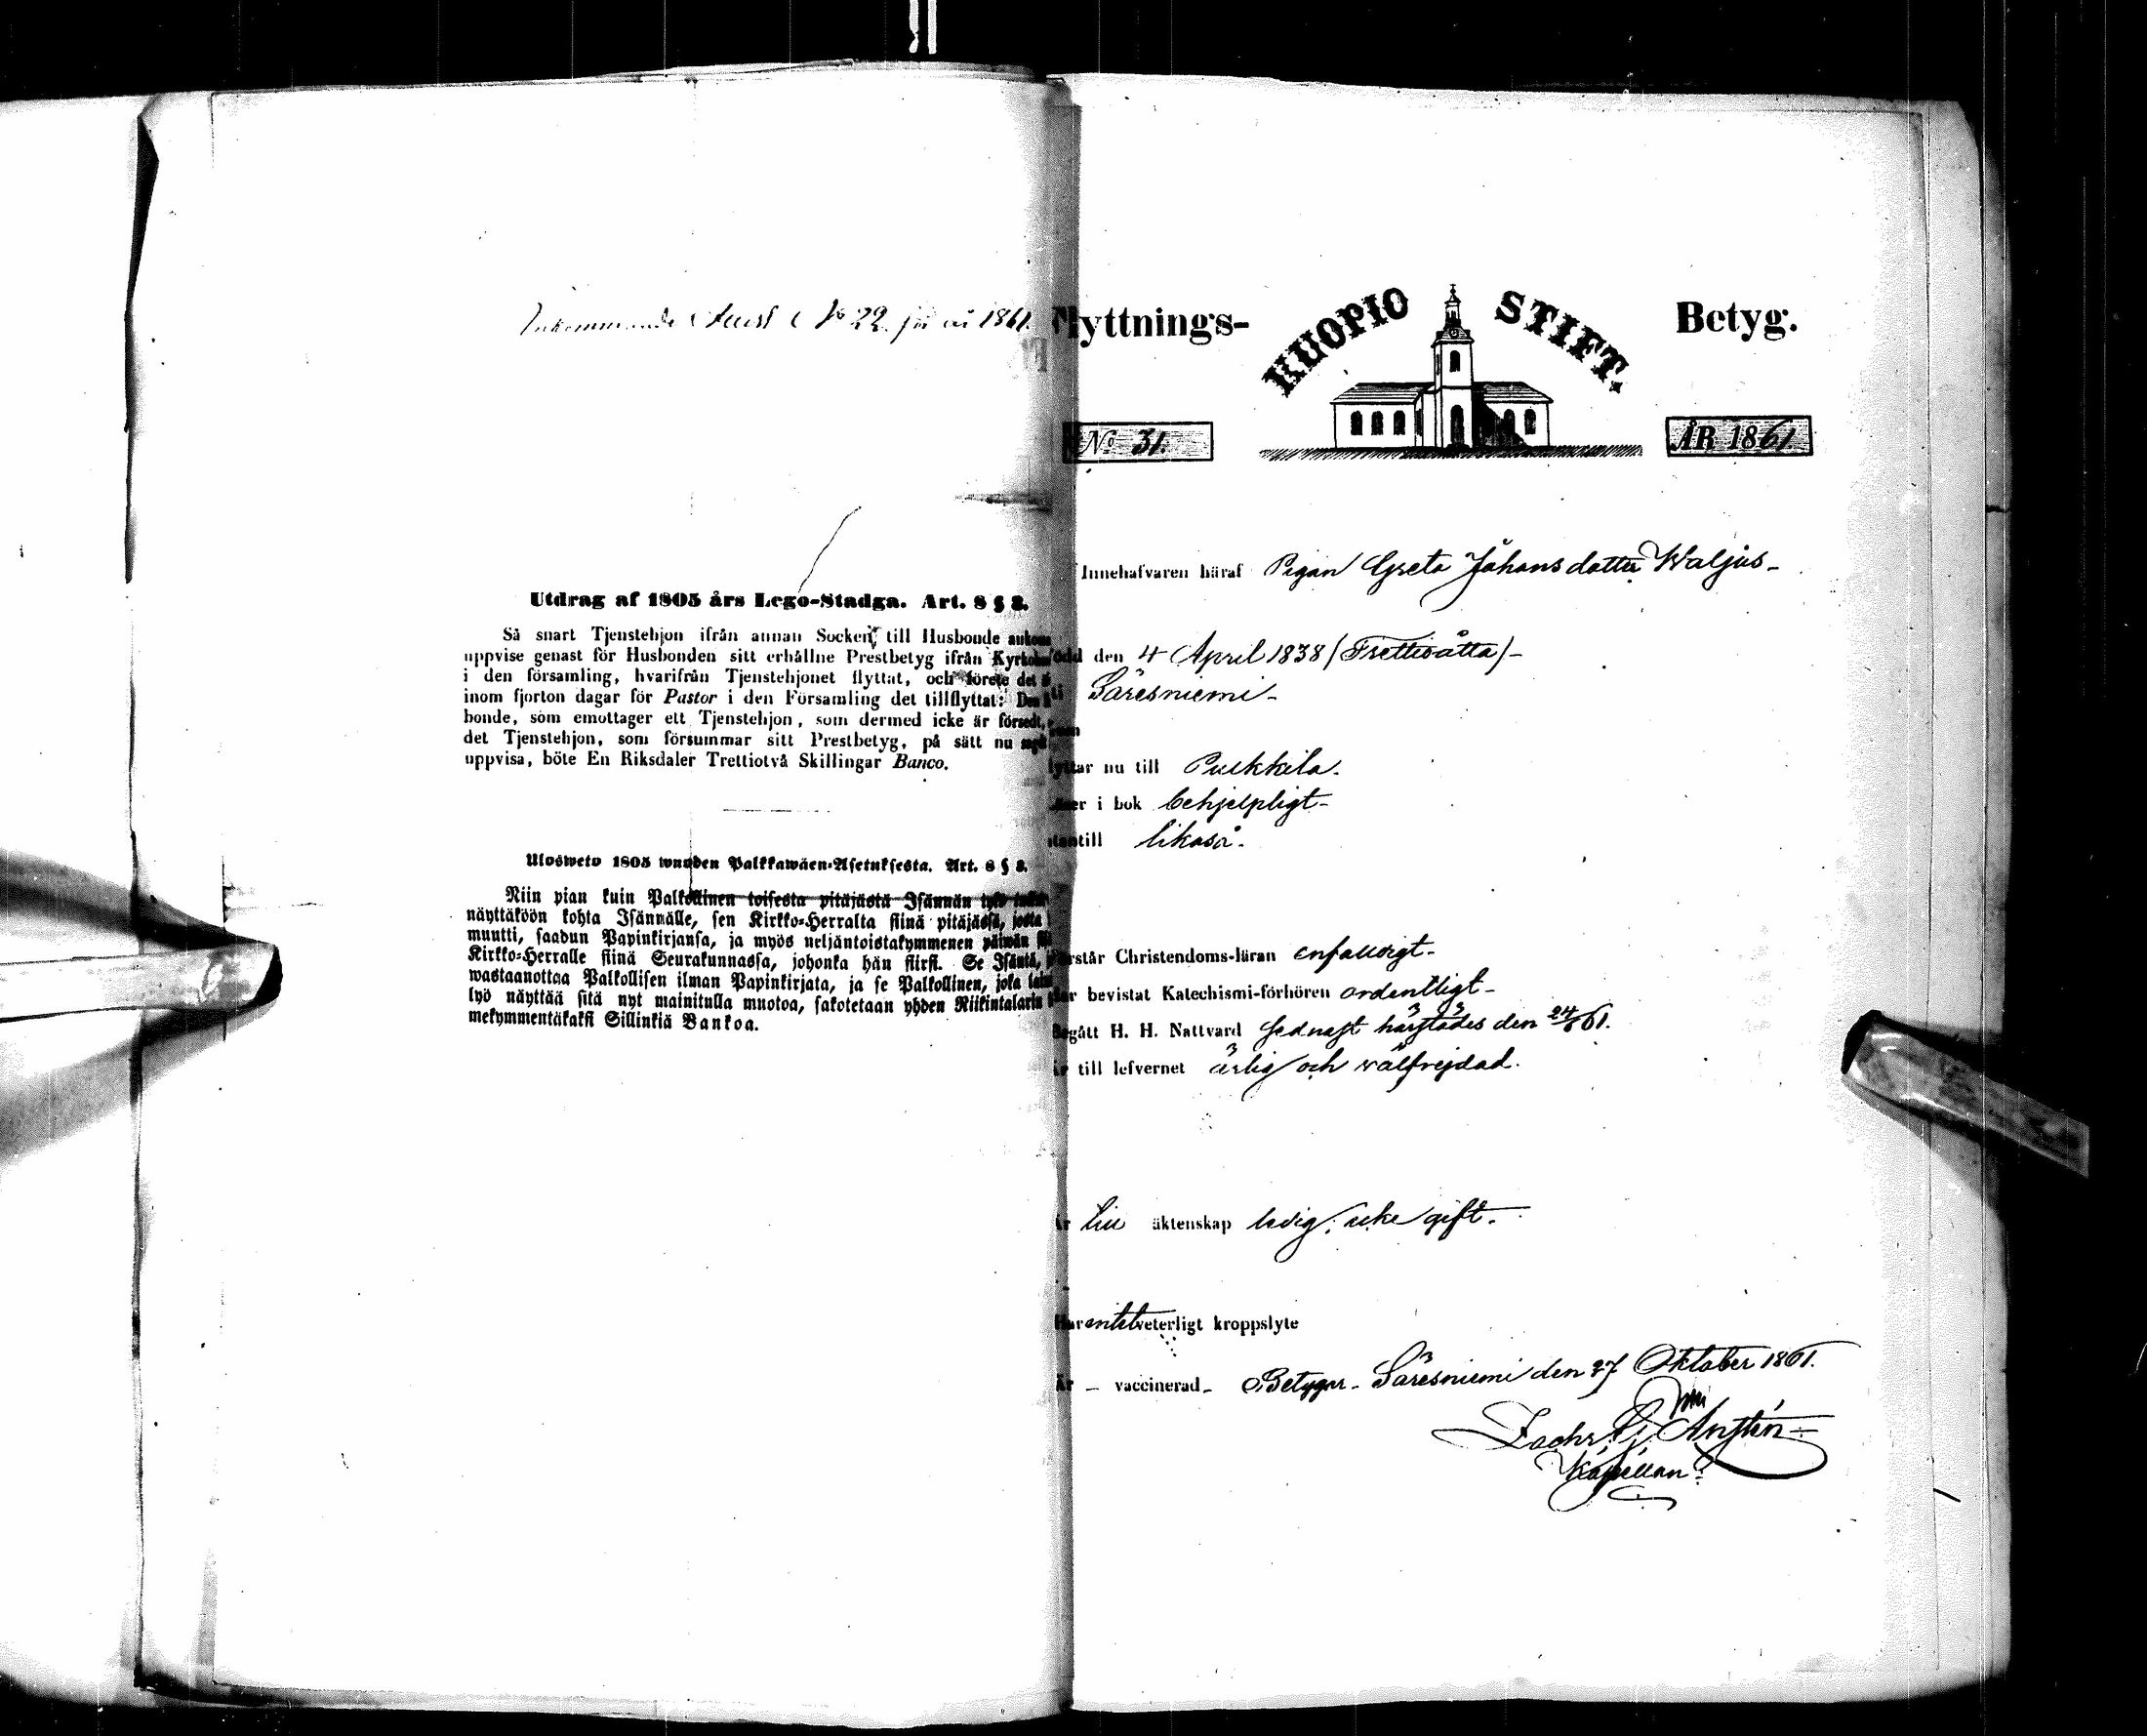 Inkommande Attest No 22 för år 1861.
Utdrag af 1805 års Lego-Stadga. Art. 8 § 8.
Så snart Tjenstehjon ifrån annan Socken till Husbonde ankom
uppvise genast för Husbonden sitt erhållne Prestbetyg ifrån Kyrkoh
i den församling, hvarifrån Tjenstehjonet flyttat, och förete det
inom fjorton dagar för Pastor i den Församling det tillflyttat: Den
bonde, som emottager ett Tjenstehjon, som dermed icke är försedt,
det Tjenstehjon, som försummar sitt Prestbetyg, på sätt nu sagt
uppvisa, böte En Riksdaler Trettiotvå Skillingar Banco.
Ulosweto 1805 wuoden Palkkawäen-Asetuksesta. Art. 8 § 8.
Niin pian kuin Palkollinen toisesta pitäjästä Isännän tykö
näyttäköön kohta Isännälle, sen Kirkko-Herralta siinä pitäjässä, josta
muutti, saadun Papinkirjansa, ja myös neljäntoistakymmenen päiwän
Kirkko-Herralle siinä Seurakunnassa, johonka hän siirsi. Se Isäntä,
wastaanottaa Palkollisen ilman Papinkirjata, ja se Palkollinen, joka
lyö näyttää sitä nyt mainitulla muotoa, sakotetaan yhden Riikintalarin
mekymmentäkaksi Sillinkiä Bankoa.
Flyttnings- KUOPIO STIFT. Betyg.
No 31. ÅR 1861
Innehafvaren häraf Pigan Greta Johansdotter Waljus-
född den 4 April 1838 (Trettioåtta)-
ti Säresniemi-
flyttar nu till Pulkkila.
läser i bok behjelpligt-
utantill likaså.
förstår Christendoms-läran enfaldigt-
har bevistat Katechismi-förhören ordentligt-
Begått H. H. Nattvard sednast härstädes den 24/6 61.
är till lefvernet ärlig och välfrejdad.
är till äktenskap ledig, icke gift.
Har intet veterligt kroppslyte
Är - vaccinerad- Betygar- Säresniemi den 27 Oktober 1861.
Kapellan